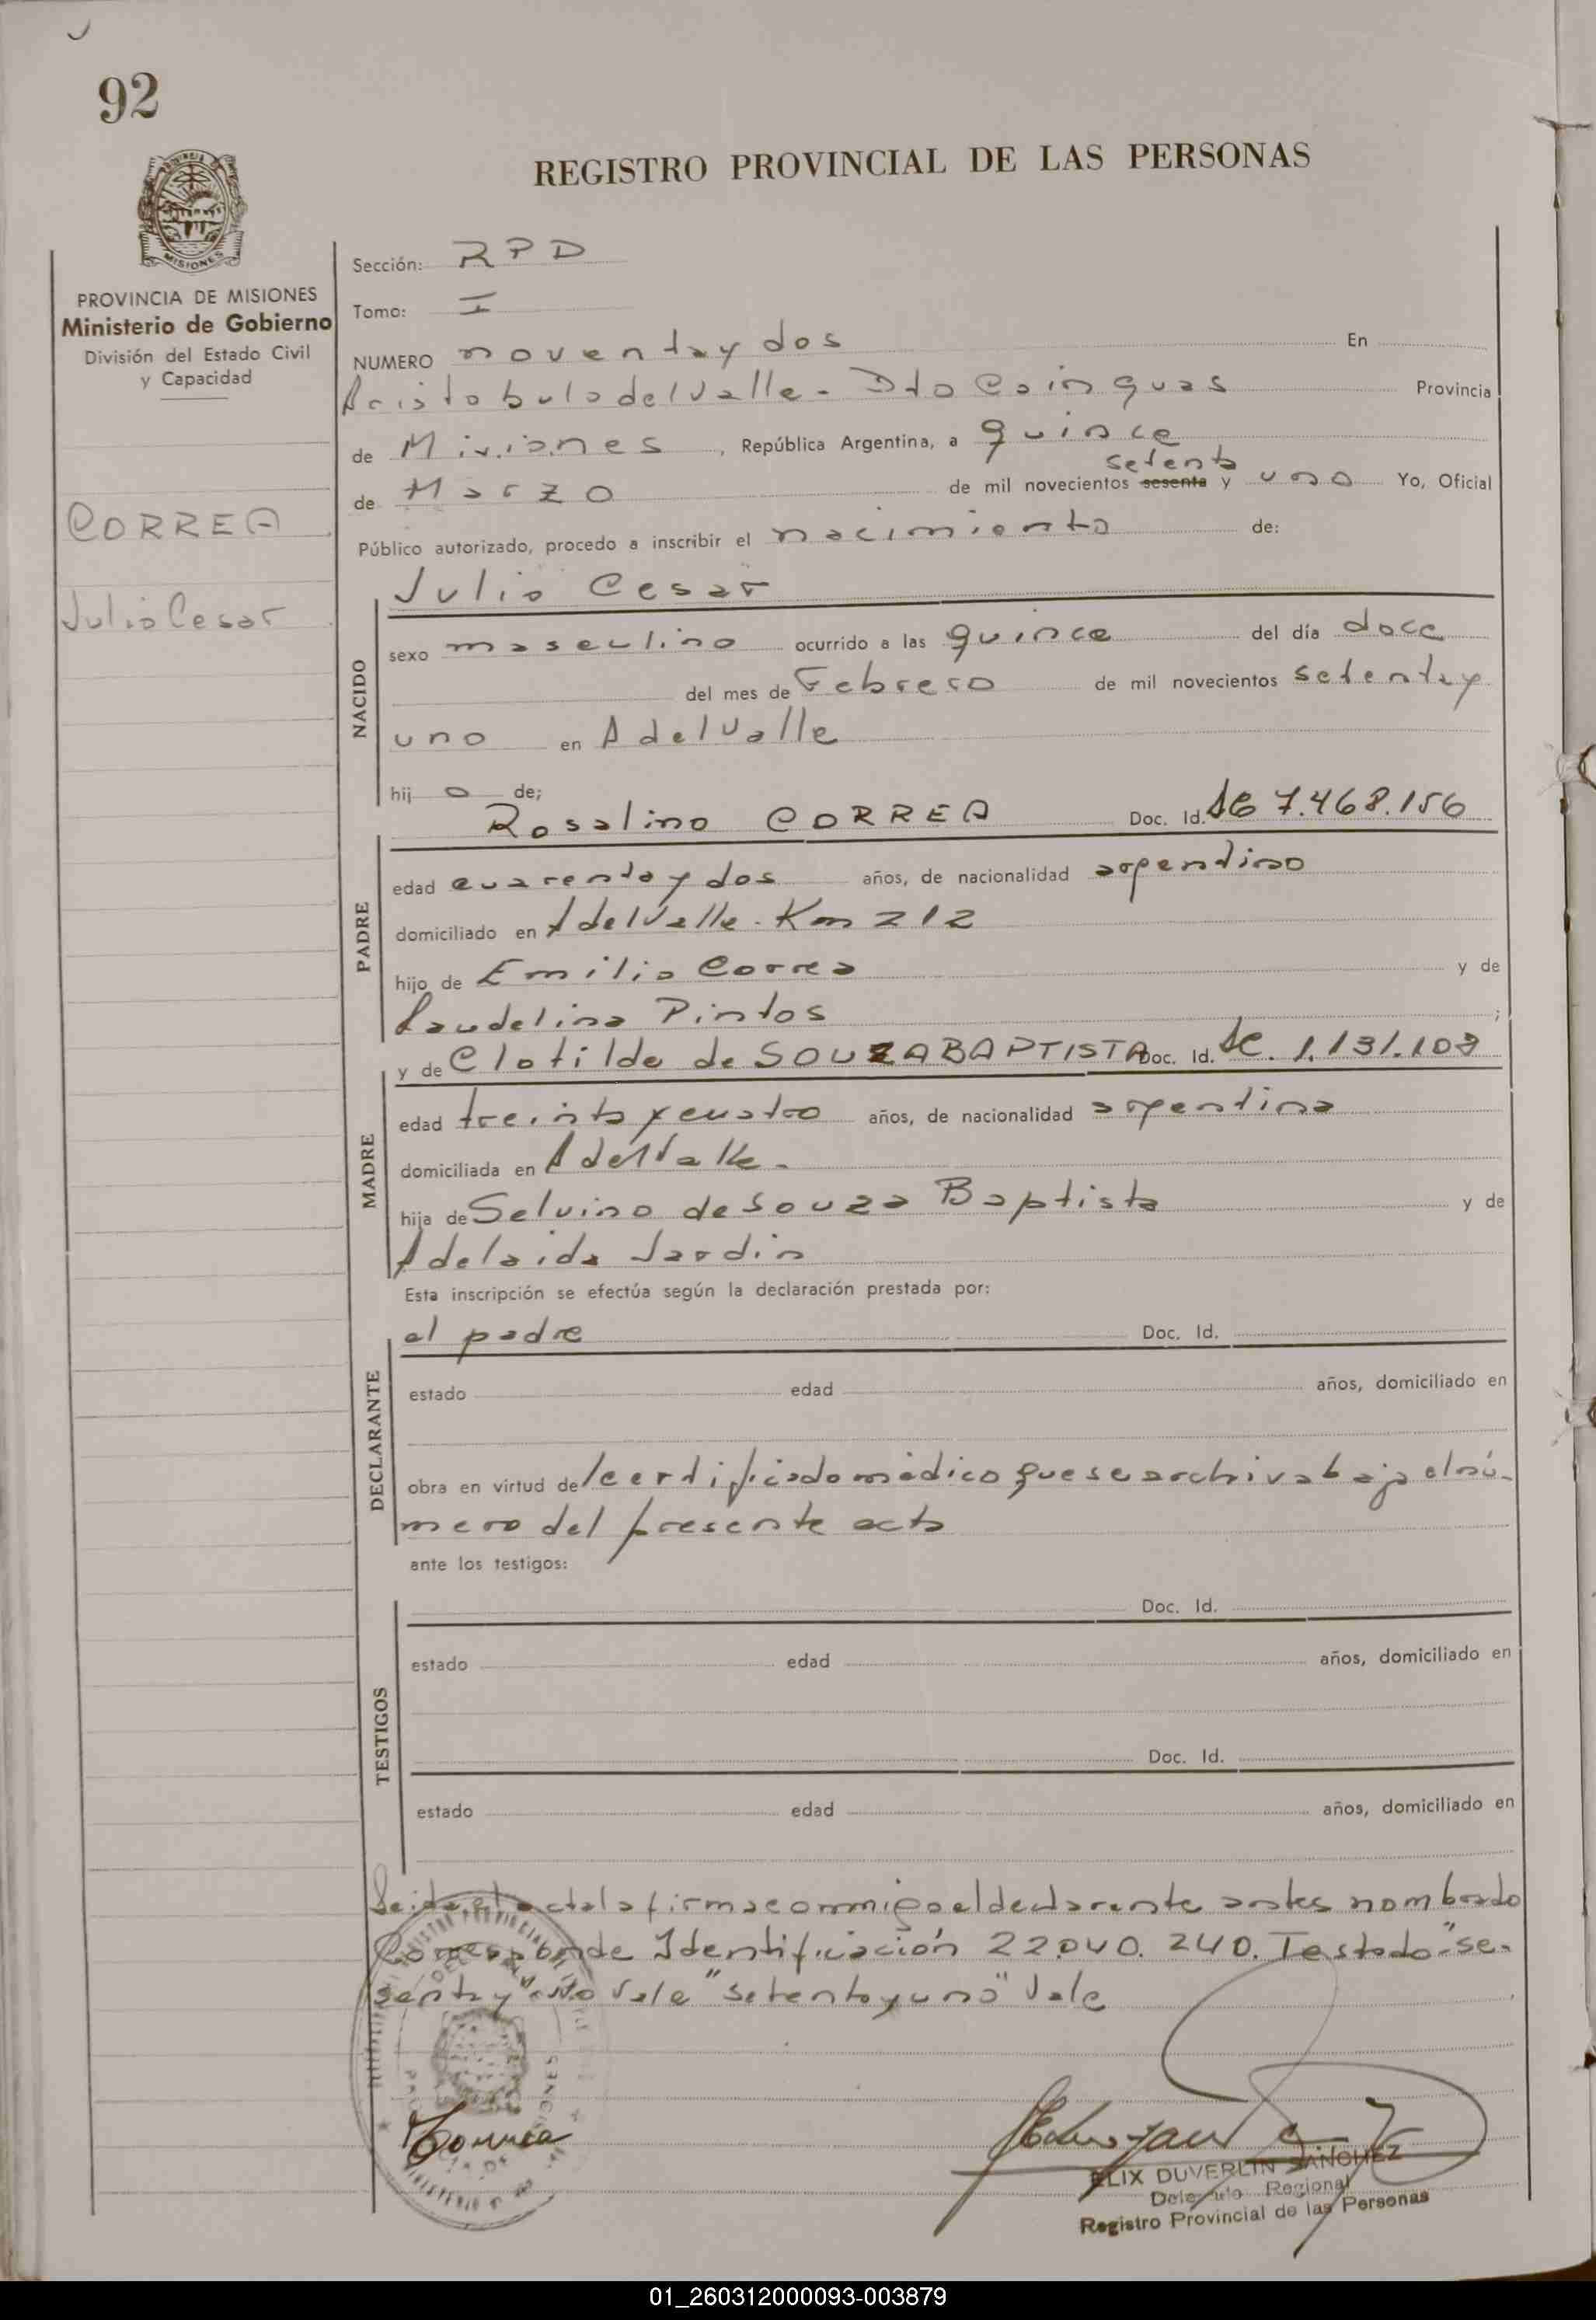 92
REGISTRO PROVINCIAL DE LAS PERSONAS
MISIONES
PROVINCIA DE MISIONES
Ministerio de Gobierno
División del Estado Civil
y Capacidad
CORREA
Julio Cesar
Sección: RPD
Tomo: I
NUMERO noventa y dos En
Aristobulo del Valle - Dto Cainguas Provincia
de Misiones, República Argentina, a quince
setenta
de Marzo de mil novecientos sesenta y uno Yo, Oficial
Público autorizado, procedo a inscribir el nacimiento de:
Julio Cesar
NACIDO
sexo masculino ocurrido a las quince del día doce
del mes de Febrero de mil novecientos setenta y
uno en A del Valle
hij o de;
Rosalino CORREA Doc. Id. 7.468.156
PADRE
edad cuarenta y dos años, de nacionalidad argentino
domiciliado en A del Valle - Km 212
hijo de Emilio Correa y de
Laudelina Pintos ;
y de Clotilde de SOUZA BAPTISTA Doc. Id. LC. 1.131.103
MADRE
edad treinta y cuatro años, de nacionalidad argentina
domiciliada en A del Valle -
hija de Selvino de Souza Baptista y de
Adelaida Jardin
Esta inscripción se efectúa según la declaración prestada por:
el padre Doc. Id.
DECLARANTE
estado edad años, domiciliado en
obra en virtud del certificado médico que se archiva bajo el nú-
mero del presente acta
ante los testigos:
Doc. Id.
TESTIGOS
estado edad años, domiciliado en
Doc. Id.
estado edad años, domiciliado en
Leida el acta la firma conmigo el declarante antes nombrado
Corresponde Identificación 22.040.240. Testado "se-
senta y" No Vale "setenta y uno" Vale
Correa
ELIX DUVERLIN SANCHEZ
Delegado Regional
Registro Provincial de las Personas
01_260312000093-003879